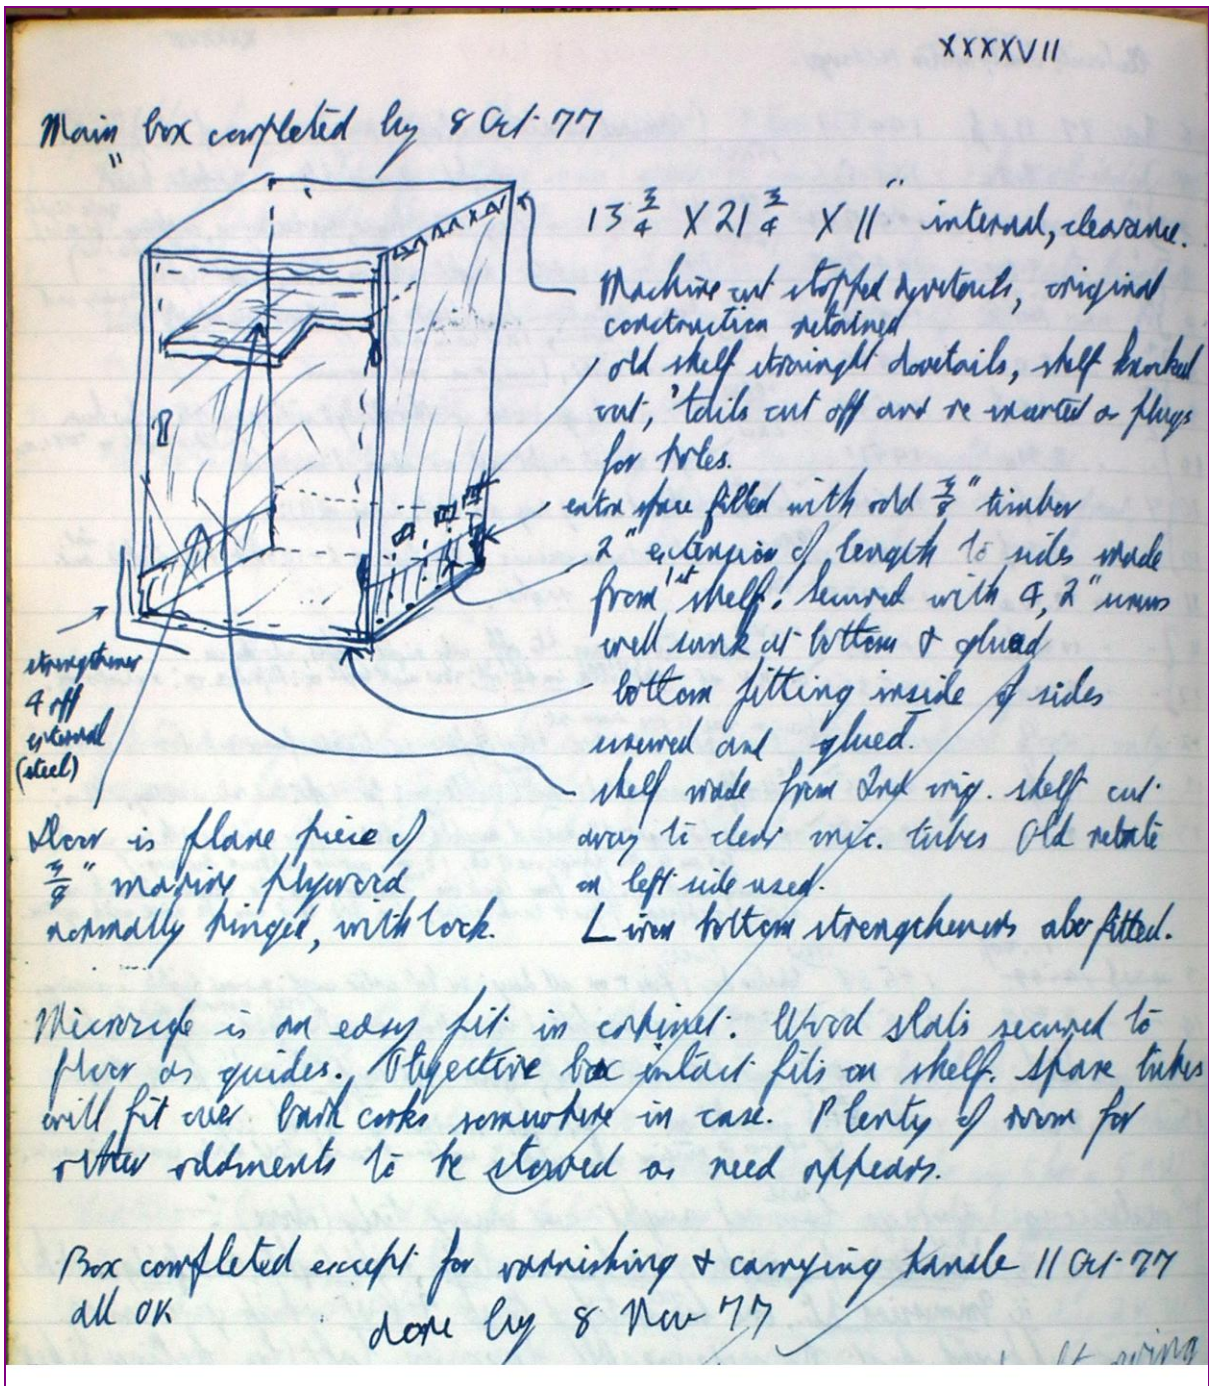 XXXXVII
Main box completed by 8 Oct 77
"
13 3/4 X 21 3/4 X 11" internal, clearance.
Machine cut stopped dovetails, original
construction retained
old shelf straight dovetails, shelf knocked
out, 'tails cut off and re inserted as plugs
for holes.
extra space filled with old 3/8" timber
2" extension of length to sides made
from 1st shelf. Secured with 4, 2" screws
well sunk at bottom & glued
bottom fitting inside of sides
screwed and glued.
shelf made from 2nd orig. shelf cut
away to clear mic. tubes Old rebate
on left side used.
L iron bottom strengtheners also fitted.
strengthener
4 off
external
(steel)
Door is plane piece of
3/8" marine plywood
normally hinged, with lock.
Microscope is an easy fit in cabinet. Wood slats secured to
floor as guides. Objective box intact fits on shelf. Spare tubes
will fit over corks somewhere in case. Plenty of room for
other oddments to be stored as need appears.
Box completed except for varnishing & carrying handle 11 Oct 77
all OK
done by 8 Nov 77